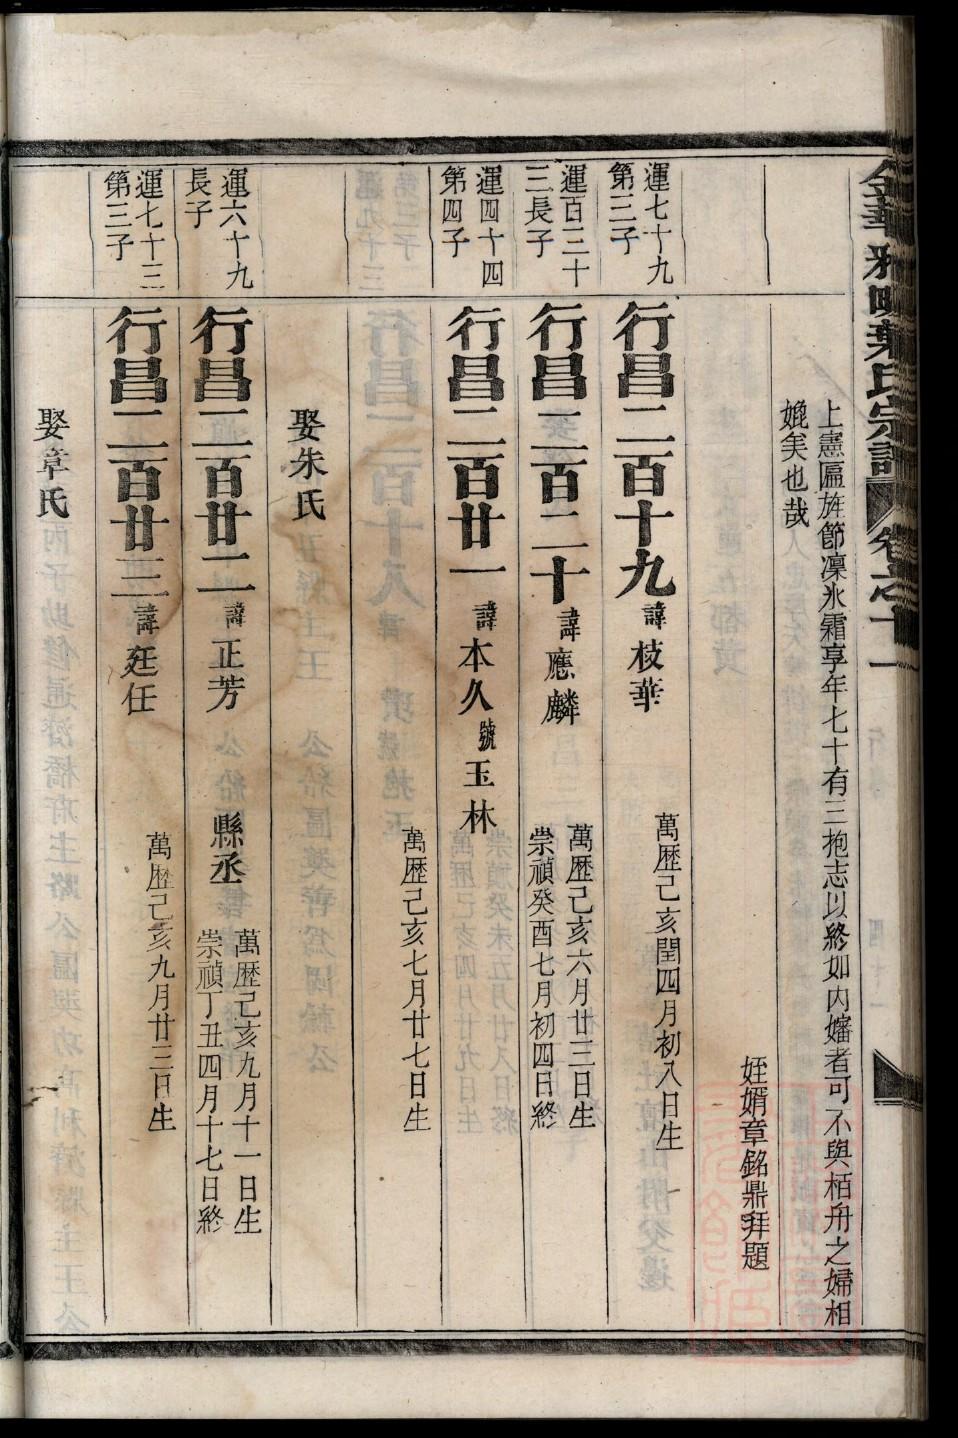 金華 葉氏宗譜 卷之十一
上憲匾旌節凜氷霜享年七十有三抱志以終如內嬸者可不與栢舟之婦相
媲美也哉
姪婿章銘鼎拜題
運七十九
第三子
行昌二百十九 諱枝華 萬歷己亥閏四月初八日生
運百三十
三長子
行昌二百二十 諱應麟 萬歷己亥六月廿三日生
崇禎癸酉七月初四日終
運四十四
第四子
行昌二百廿一 諱本久 號玉林
萬歷己亥七月廿七日生
娶朱氏
運六十九
長子
行昌二百廿二 諱正芳 縣丞 萬歷己亥九月十一日生
崇禎丁丑四月十七日終
運七十三
第三子
行昌二百廿三 諱廷任 萬歷己亥九月廿三日生
娶章氏